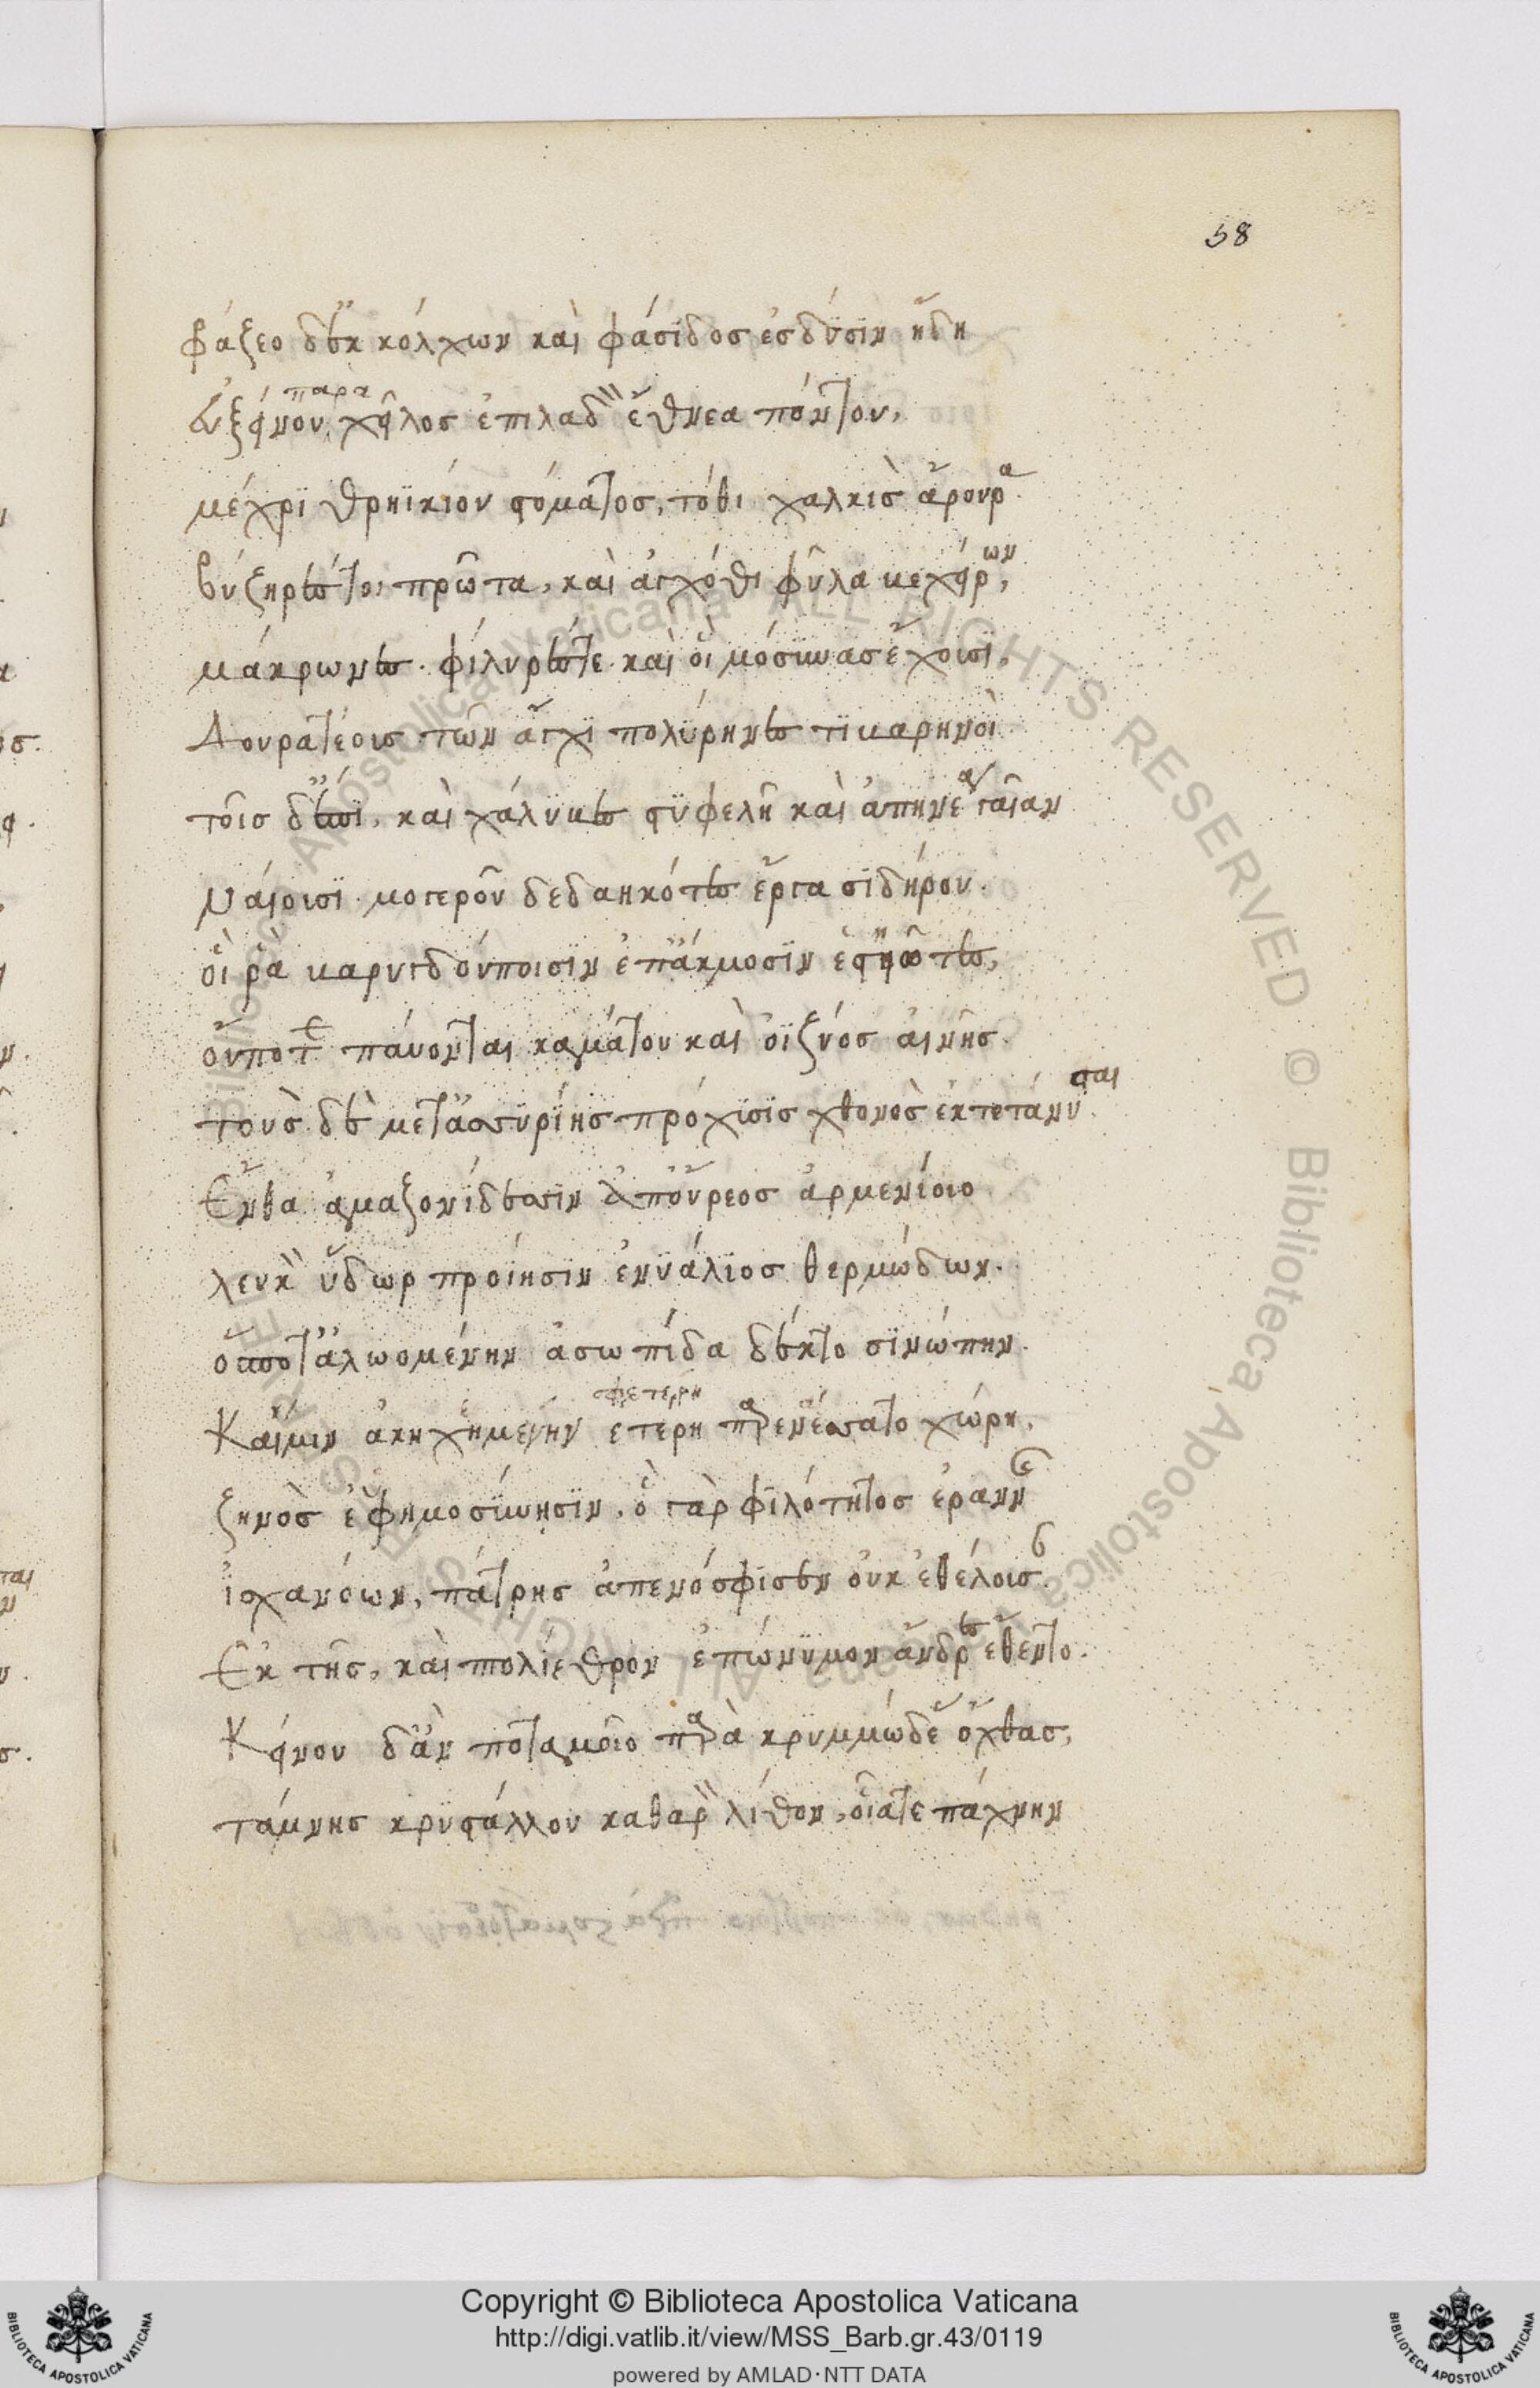 58
φράζεο δ' ἐκ κόλχων καὶ φάσιδος ἐς δύσιν ἤδη
εὐξείνου παρὰ χεῖλος ἐπιλαδὸν ἔθνεα πόντου,
μέχρι θρηϊκίου στόματος, τόθι χαλκὶς ἄρουρα.
βύζηρές τοι πρῶτα, καὶ ἀγχόθι φῦλα βεχείρων,
μάκρωνες. φίλυρές τε καὶ οἳ μόσυνας ἔχουσι,
Δουρατέους τῶν ἄγχι πολύρηνες τιβαρηνοί
τοῖς δ' ἐπὶ, καὶ χάλυβες στυφελὴν καὶ ἀπηνέα γαῖαν
Ναίουσι. μογερῶν δεδαηκότες ἔργα σιδήρου.
οἵ ῥα βαρυγδούποισιν ἐπ' ἄκμοσιν ἑστηῶτες,
οὔποτε παύονται καμάτου καὶ ὀϊζύος αἰνῆς.
τοὺς δὲ μετ' ἀσσυρίης πρόχυσις χθονὸς ἐκτετάνυσται
Ἔνθα ἀμαζονίδεσσιν ἀπ' οὔρεος ἀρμενίοιο
λευκὸν ὕδωρ προίησιν ἐνυάλιος θερμώδων.
ὅς ποτ' ἀλωομένην ἀσωπίδα δέκτο σινώπην.
Καί μιν ἀκηχημένην σφετέρῃ
ετερη παρενάσσατο χώρῃ,
ζηνὸς ἐφημοσύνησιν, ὁ γὰρ φιλότητος ἐραννῆς
ἰσχανόων, πάτρης ἀπενόσφισεν οὐκ ἐθέλουσαν
Ἐκ τῆς, καὶ πτολίεθρον ἐπώνυμον ἄνδρες ἔθεντο.
Κείνου δ' ἂν ποταμοῖο παρὰ κρυμμώδε' ὄχθας,
τάμνῃς κρυστάλλου καθαρὸν λίθον, οἷά τε πάχνην
Copyright © Biblioteca Apostolica Vaticana
http://digi.vatlib.it/view/MSS_Barb.gr.43/0119
powered by AMLAD·NTT DATA